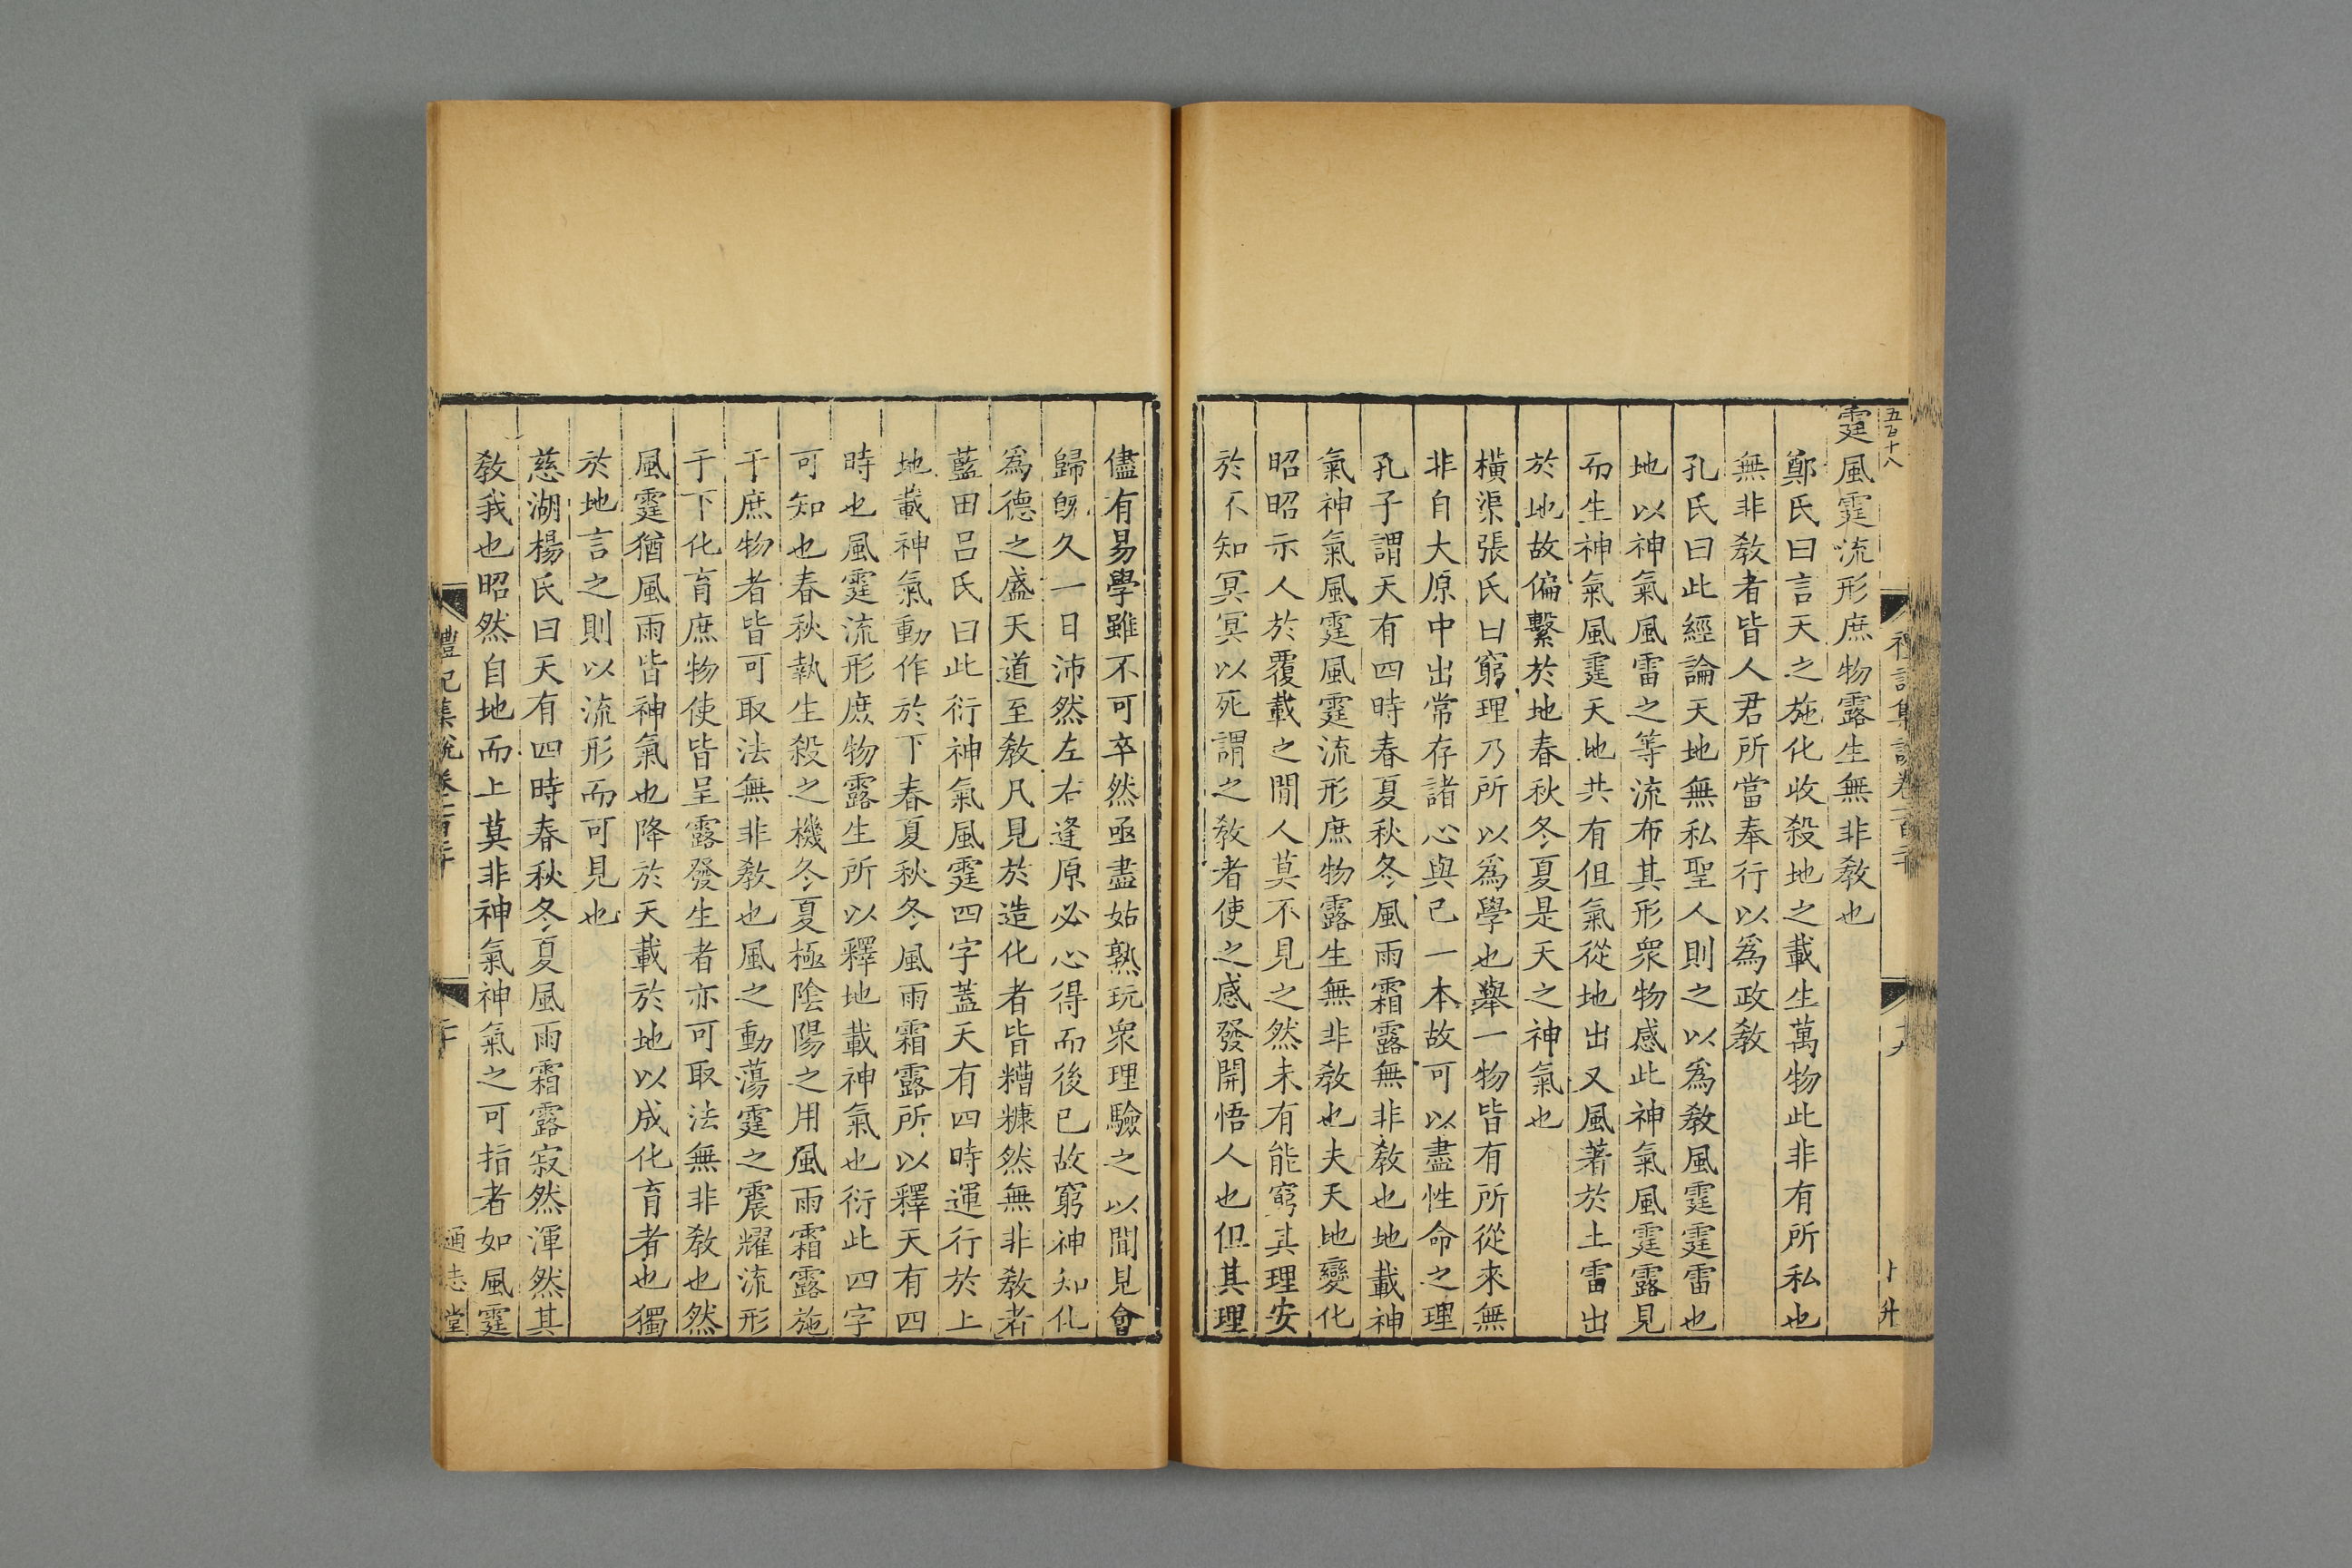 五百十八
霆風霆流形庶物露生無非敎也
鄭氏曰言天之施化收殺地之載生萬物此非有所私也
無非敎者皆人君所當奉行以爲政敎
孔氏曰此經論天地無私聖人則之以爲敎風霆霆雷也
地以神氣風雷之等流布其形衆物感此神氣風霆露見
而生神氣風霆天地共有但氣從地出又風著於土雷出
於地故偏繫於地春秋冬夏是天之神氣也
橫渠張氏曰窮理乃所以爲學也舉一物皆有所從來無
非自大原中出常存諸心與己一本故可以盡性命之理
孔子謂天有四時春夏秋冬風雨霜露無非敎也地載神
氣神氣風霆風霆流形庶物露生無非敎也夫天地變化
昭昭示人於覆載之間人莫不見之然未有能窮其理安
於不知冥冥以死謂之敎者使之感發開悟人也但其理
儘有易學雖不可卒然亟盡姑熟玩衆理驗之以聞見會
歸旣久一日沛然左右逢原必心得而後已故窮神知化
爲德之盛天道至敎凡見於造化者皆糟糠然無非敎者
藍田呂氏曰此衍神氣風霆四字蓋天有四時運行於上
地載神氣動作於下春夏秋冬風雨霜露所以釋天有四
時也風霆流形庶物露生所以釋地載神氣也衍此四字
可知也春秋執生殺之機冬夏極陰陽之用風雨霜露施
于庶物者皆可取法無非敎也風之動蕩霆之震耀流形
于下化育庶物使皆呈露發生者亦可取法無非敎也然
風霆猶風雨皆神氣也降於天載於地以成化育者也獨
於地言之則以流形而可見也
慈湖楊氏曰天有四時春秋冬夏風雨霜露寂然渾然其
敎我也昭然自地而上莫非神氣神氣之可指者如風霆
禮記集說卷
通志堂